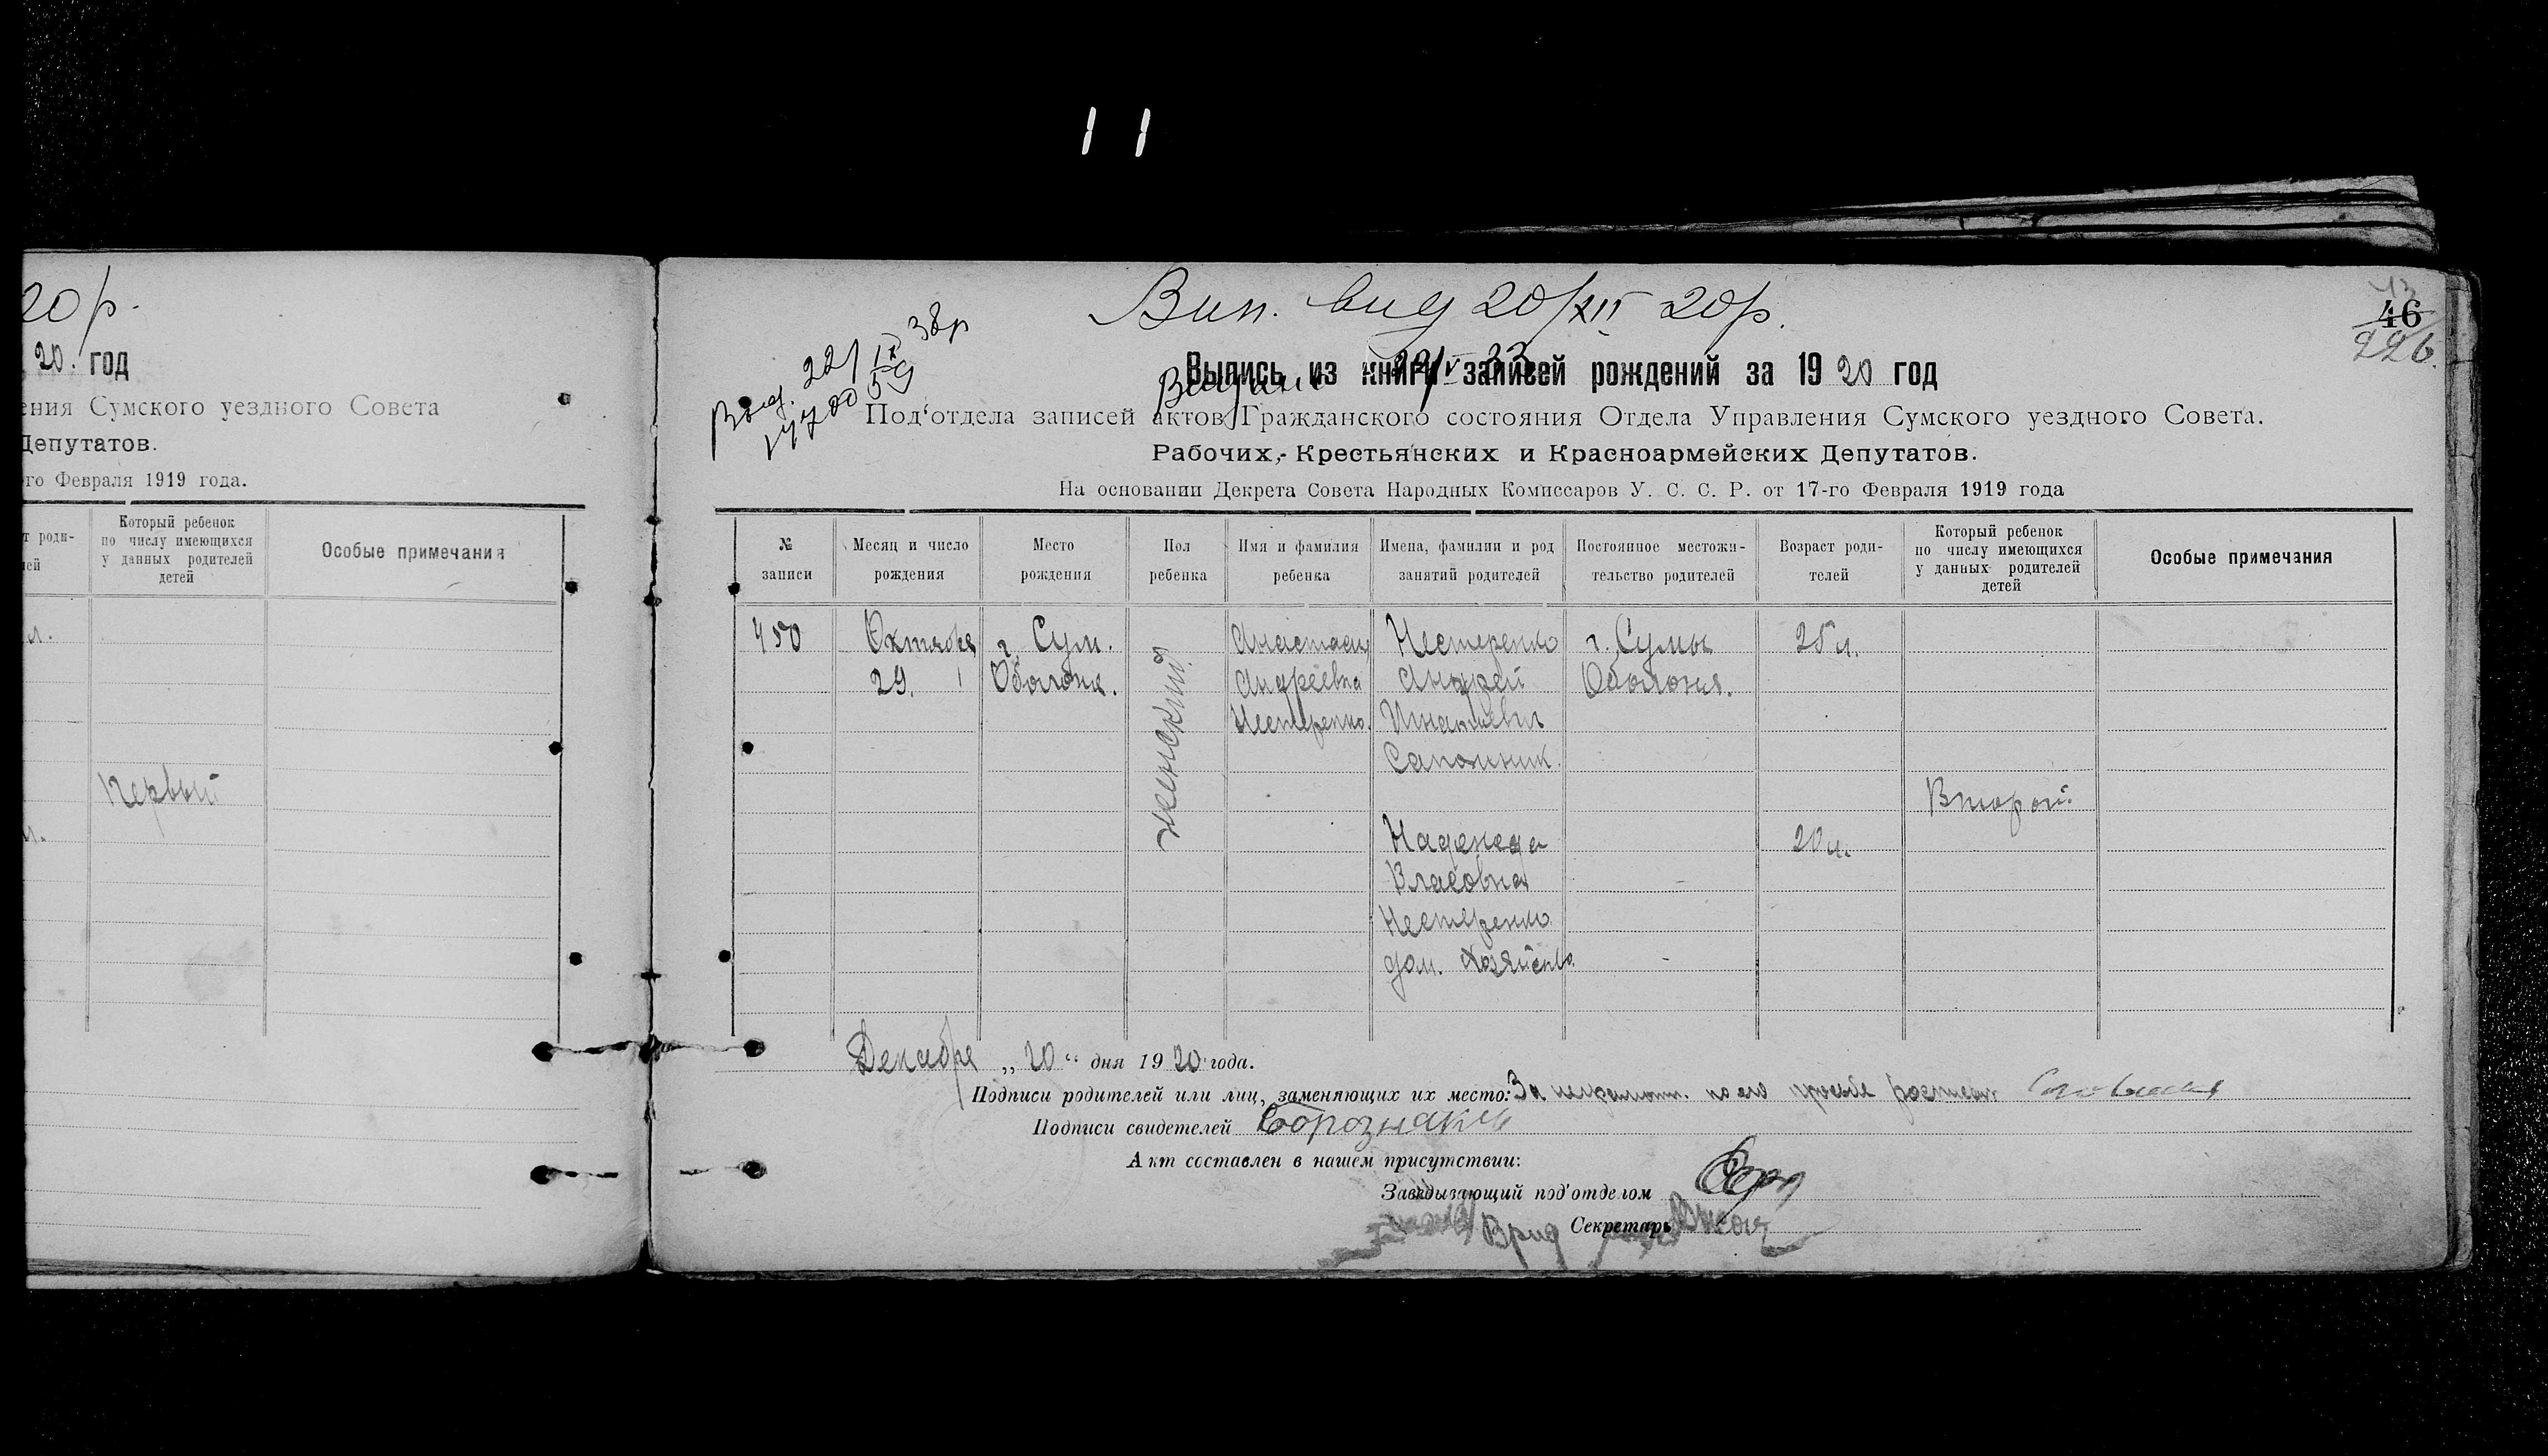 11
20р.
20. год
ения Сумского уездного Совета
Депутатов.
го Февраля 1919 года.
т роди-
ей
Который ребенок
по числу имеющихся
у данных родителей
детей
Особые примечания
л.
Первый
л.
Вип. вид 20/XII 20р.
46
226
Выд. 22/IX 38р
Выпись из книги записей рождений за 1920 год
Под'отдела записей актов Гражданского состояния Отдела Управления Сумского уездного Совета.
Рабочих,- Крестьянских и Красноармейских Депутатов.
На основании Декрета Совета Народных Комиссаров У. С. С. Р. от 17-го Февраля 1919 года
№
записи
Месяц и число
рождения
Место
рождения
Пол
ребенка
Имя и фамилия
ребенка
Имена, фамилии и род
занятий родителей
Постоянное местожи-
тельство родителей
Возраст роди-
телей
Который ребенок
по числу имеющихся
у данных родителей
детей
Особые примечания
450
Октября
29.
г. Сум.
Оболонь.
женский
Анастасия
Андреевна
Нестеренко.
Нестеренко
Андрей
Игнатьевич
Сапожник.
Надежда
Власовна
Нестеренко.
дом. хозяйство.
г. Сумы
Оболонь.
25 л.
20 л.
Второй.
Декабря „20“ дня 1920 года.
Подписи родителей или лиц, заменяющих их место: За неграмотн. по его просьбе
Подписи свидетелей
Акт составлен в нашем присутствии:
Заведывающий под'отделом
Врид Секретарь